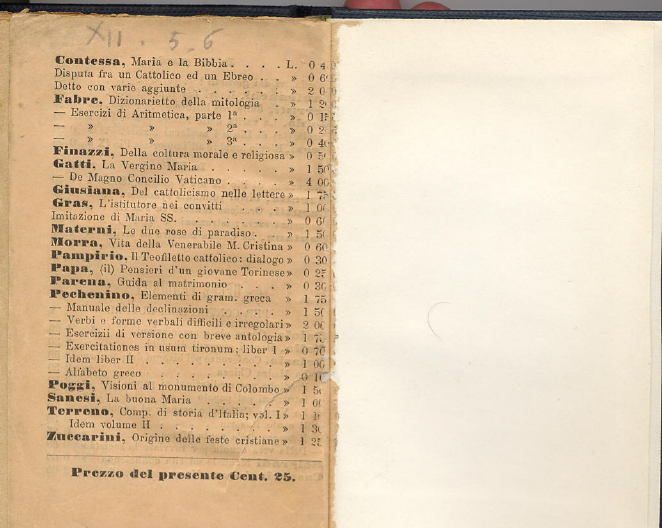 XII. 5. 6
Contessa, Maria e la Bibbia . . . . L. 0 4
Disputa fra un Cattolico ed un Ebreo . . » 0 6
Detto con varie aggiunte . . . . . . » 2 0
Fabre, Dizionarietto della mitologia . » 1 2
— Esercizi di Aritmetica, parte 1ª . . . » 0 15
— » » » 2ª . . . » 0 2
— » » » 3ª . . . » 0 40
Finazzi, Della coltura morale e religiosa » 0 5
Gatti. La Vergine Maria . . . . . . » 1 50
— De Magno Concilio Vaticano . . . . » 4 00
Giusiana, Del cattolicismo nelle lettere » 1 75
Gras, L'istitutore nei convitti . . . . » 1 00
Imitazione di Maria SS. . . . . . . . » 0 60
Materni, Le due rose di paradiso . . . » 1 50
Morra, Vita della Venerabile M. Cristina » 0 60
Pampirio, Il Teofiletto cattolico: dialogo » 0 30
Papa, (il) Pensieri d'un giovane Torinese » 0 25
Parena, Guida al matrimonio . . . . » 0 30
Pechenino, Elementi di gram. greca » 1 75
— Manuale delle declinazioni . . . . . » 1 50
— Verbi e forme verbali difficili e irregolari » 2 00
— Esercizii di versione con breve antologia » 1 75
— Exercitationes in usum tironum; liber I » 0 70
— Idem liber II . . . . . . . . . . » 1 00
— Alfabeto greco . . . . . . . . . » 0 10
Poggi, Visioni al monumento di Colombo » 1 50
Sanesi, La buona Maria . . . . . . » 1 00
Terreno, Comp. di storia d'Italia; vol. I » 1 1
Idem volume II . . . . . . . . . » 1 30
Zuccarini, Origine delle feste cristiane » 1 25
Prezzo del presente Cent. 25.